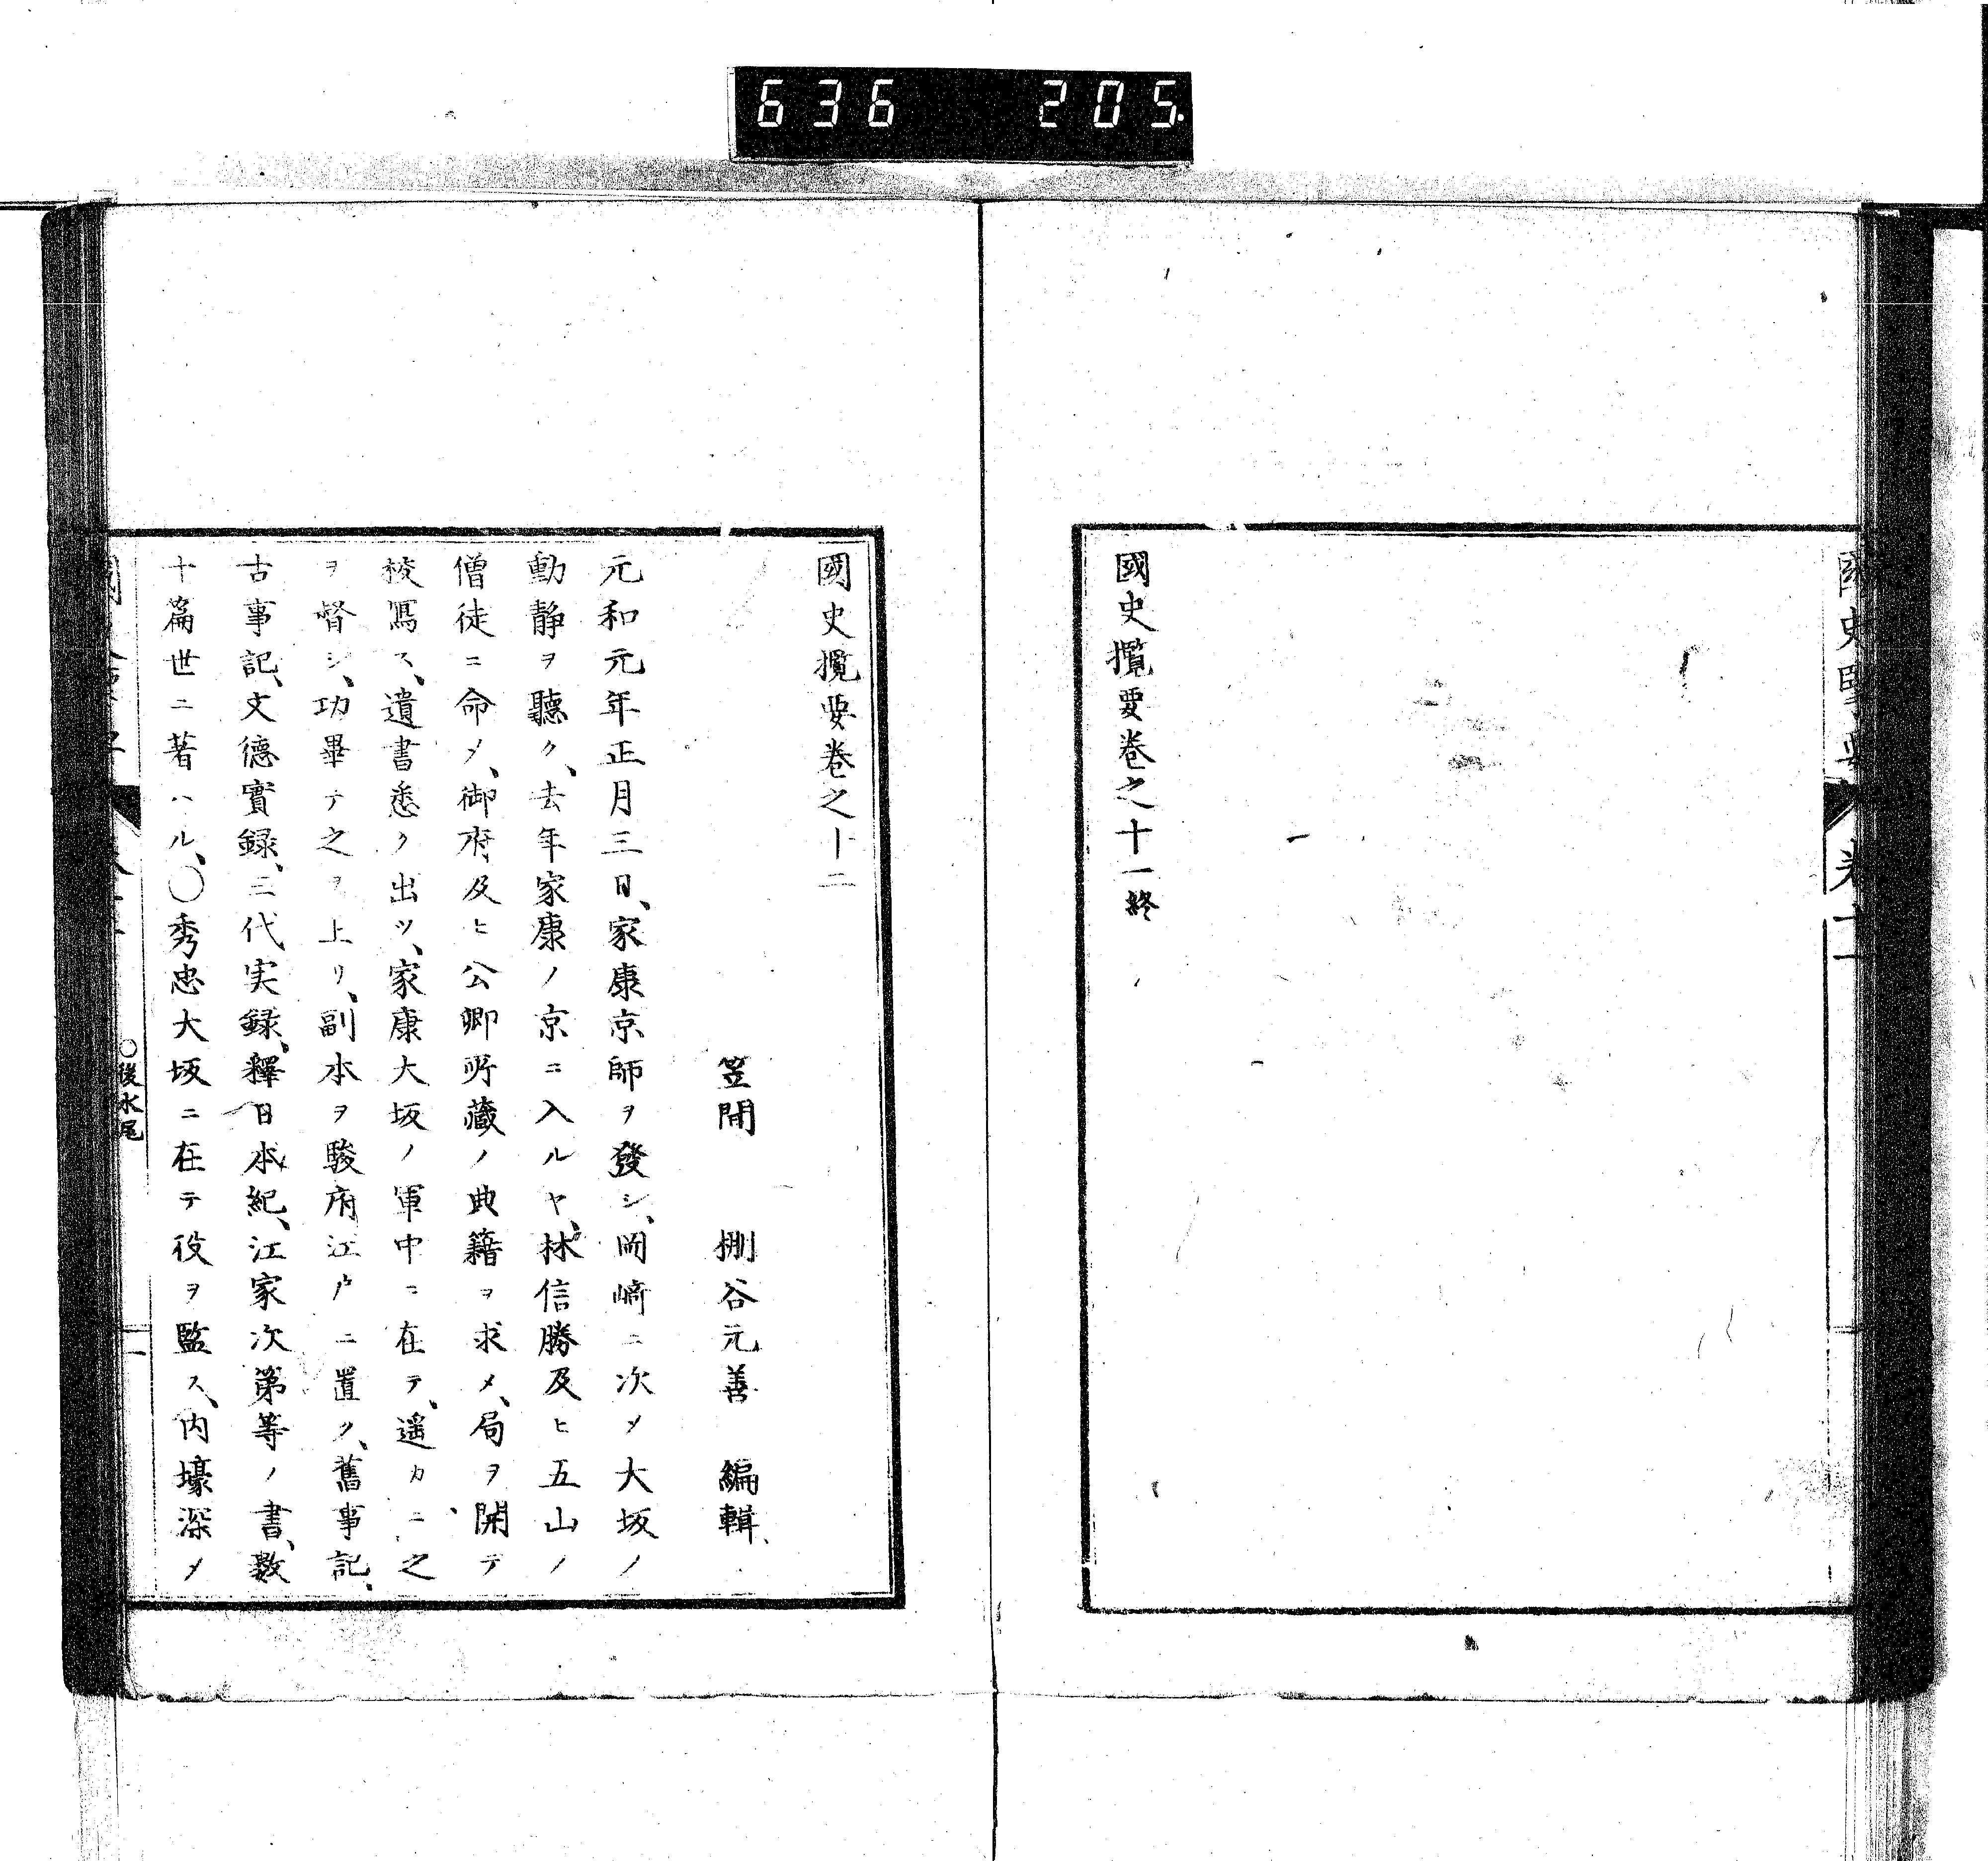 636 205
國史攬要卷之十一終
國史攬要卷之十二
笠間 棚谷元善 編輯
元和元年正月三日、家康京師ヲ發シ、岡﨑ニ次メ大坂ノ
動靜ヲ聽ク、去年家康ノ京ニ入ルヤ、林信勝及ヒ五山ノ
僧徒ニ命メ、御府及ヒ公卿所藏ノ典籍ヲ求メ、局ヲ開テ
校寫ス、遺書悉ク出ツ、家康大坂ノ軍中ニ在テ、遥カニ之
ヲ督シ、功畢テ之ヲ上リ、副本ヲ駿府江戸ニ置ク、舊事記、
古事記、文德實録、三代実録、釋日本紀、江家次第等ノ書、数
十篇世ニ著ハル、〇秀忠大坂ニ在テ役ヲ監ス、内壕深メ
〇後水尾